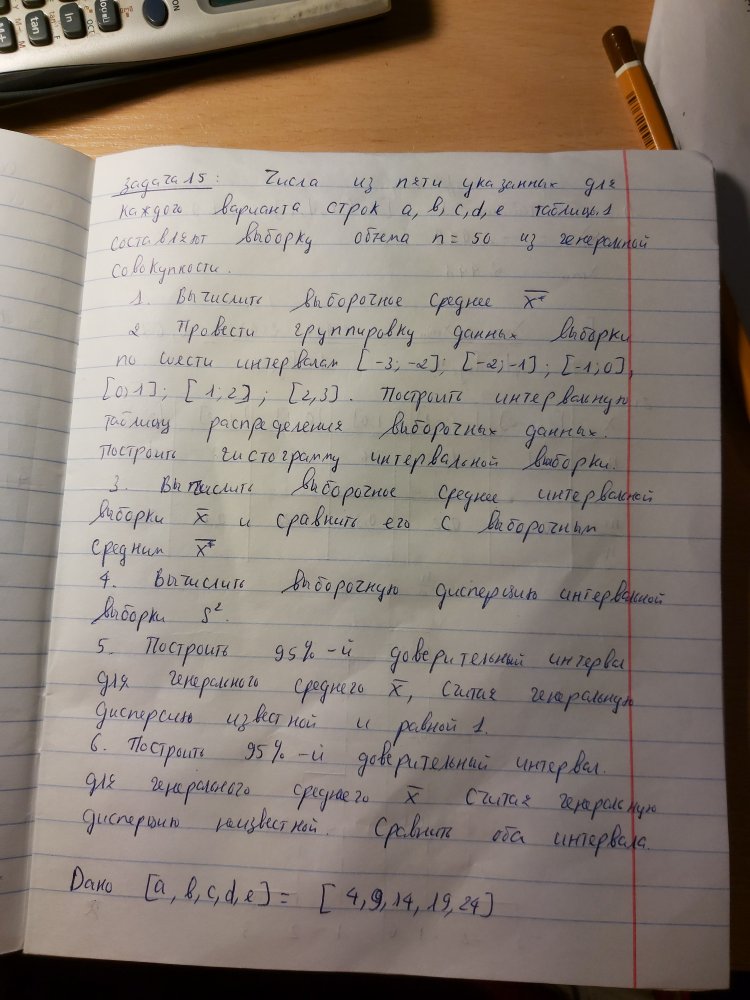 ON
tan
ln
M+
Задача 15: Числа из пяти указанных для
каждого варианта строк a, b, c, d, e таблицы.1
составляют выборку объема n = 50 из генеральной
совокупности.
1. Вычислить выборочное среднее x̅*
2 Провести группировку данных выборки
по шести интервалам [-3; -2]; [-2; -1]; [-1; 0],
[0; 1]; [1; 2]; [2, 3]. Построить интервальную
таблицу распределения выборочных данных.
Построить гистограмму интервальной выборки.
3. Вычислить выборочное среднее интервальной
выборки x̅ и сравнить его с выборочным
средним x̅*
4. Вычислить выборочную дисперсию интервальной
выборки S².
5. Построить 95% -й доверительный интервал
для генерального среднего x̅, считая генеральную
дисперсию известной и равной 1.
6. Построить 95% -й доверительный интервал.
для генерального среднего x̅ считая генеральную
дисперсию неизвестной. Сравнить оба интервала.
Дано [a, b, c, d, e] = [4, 9, 14, 19, 24]